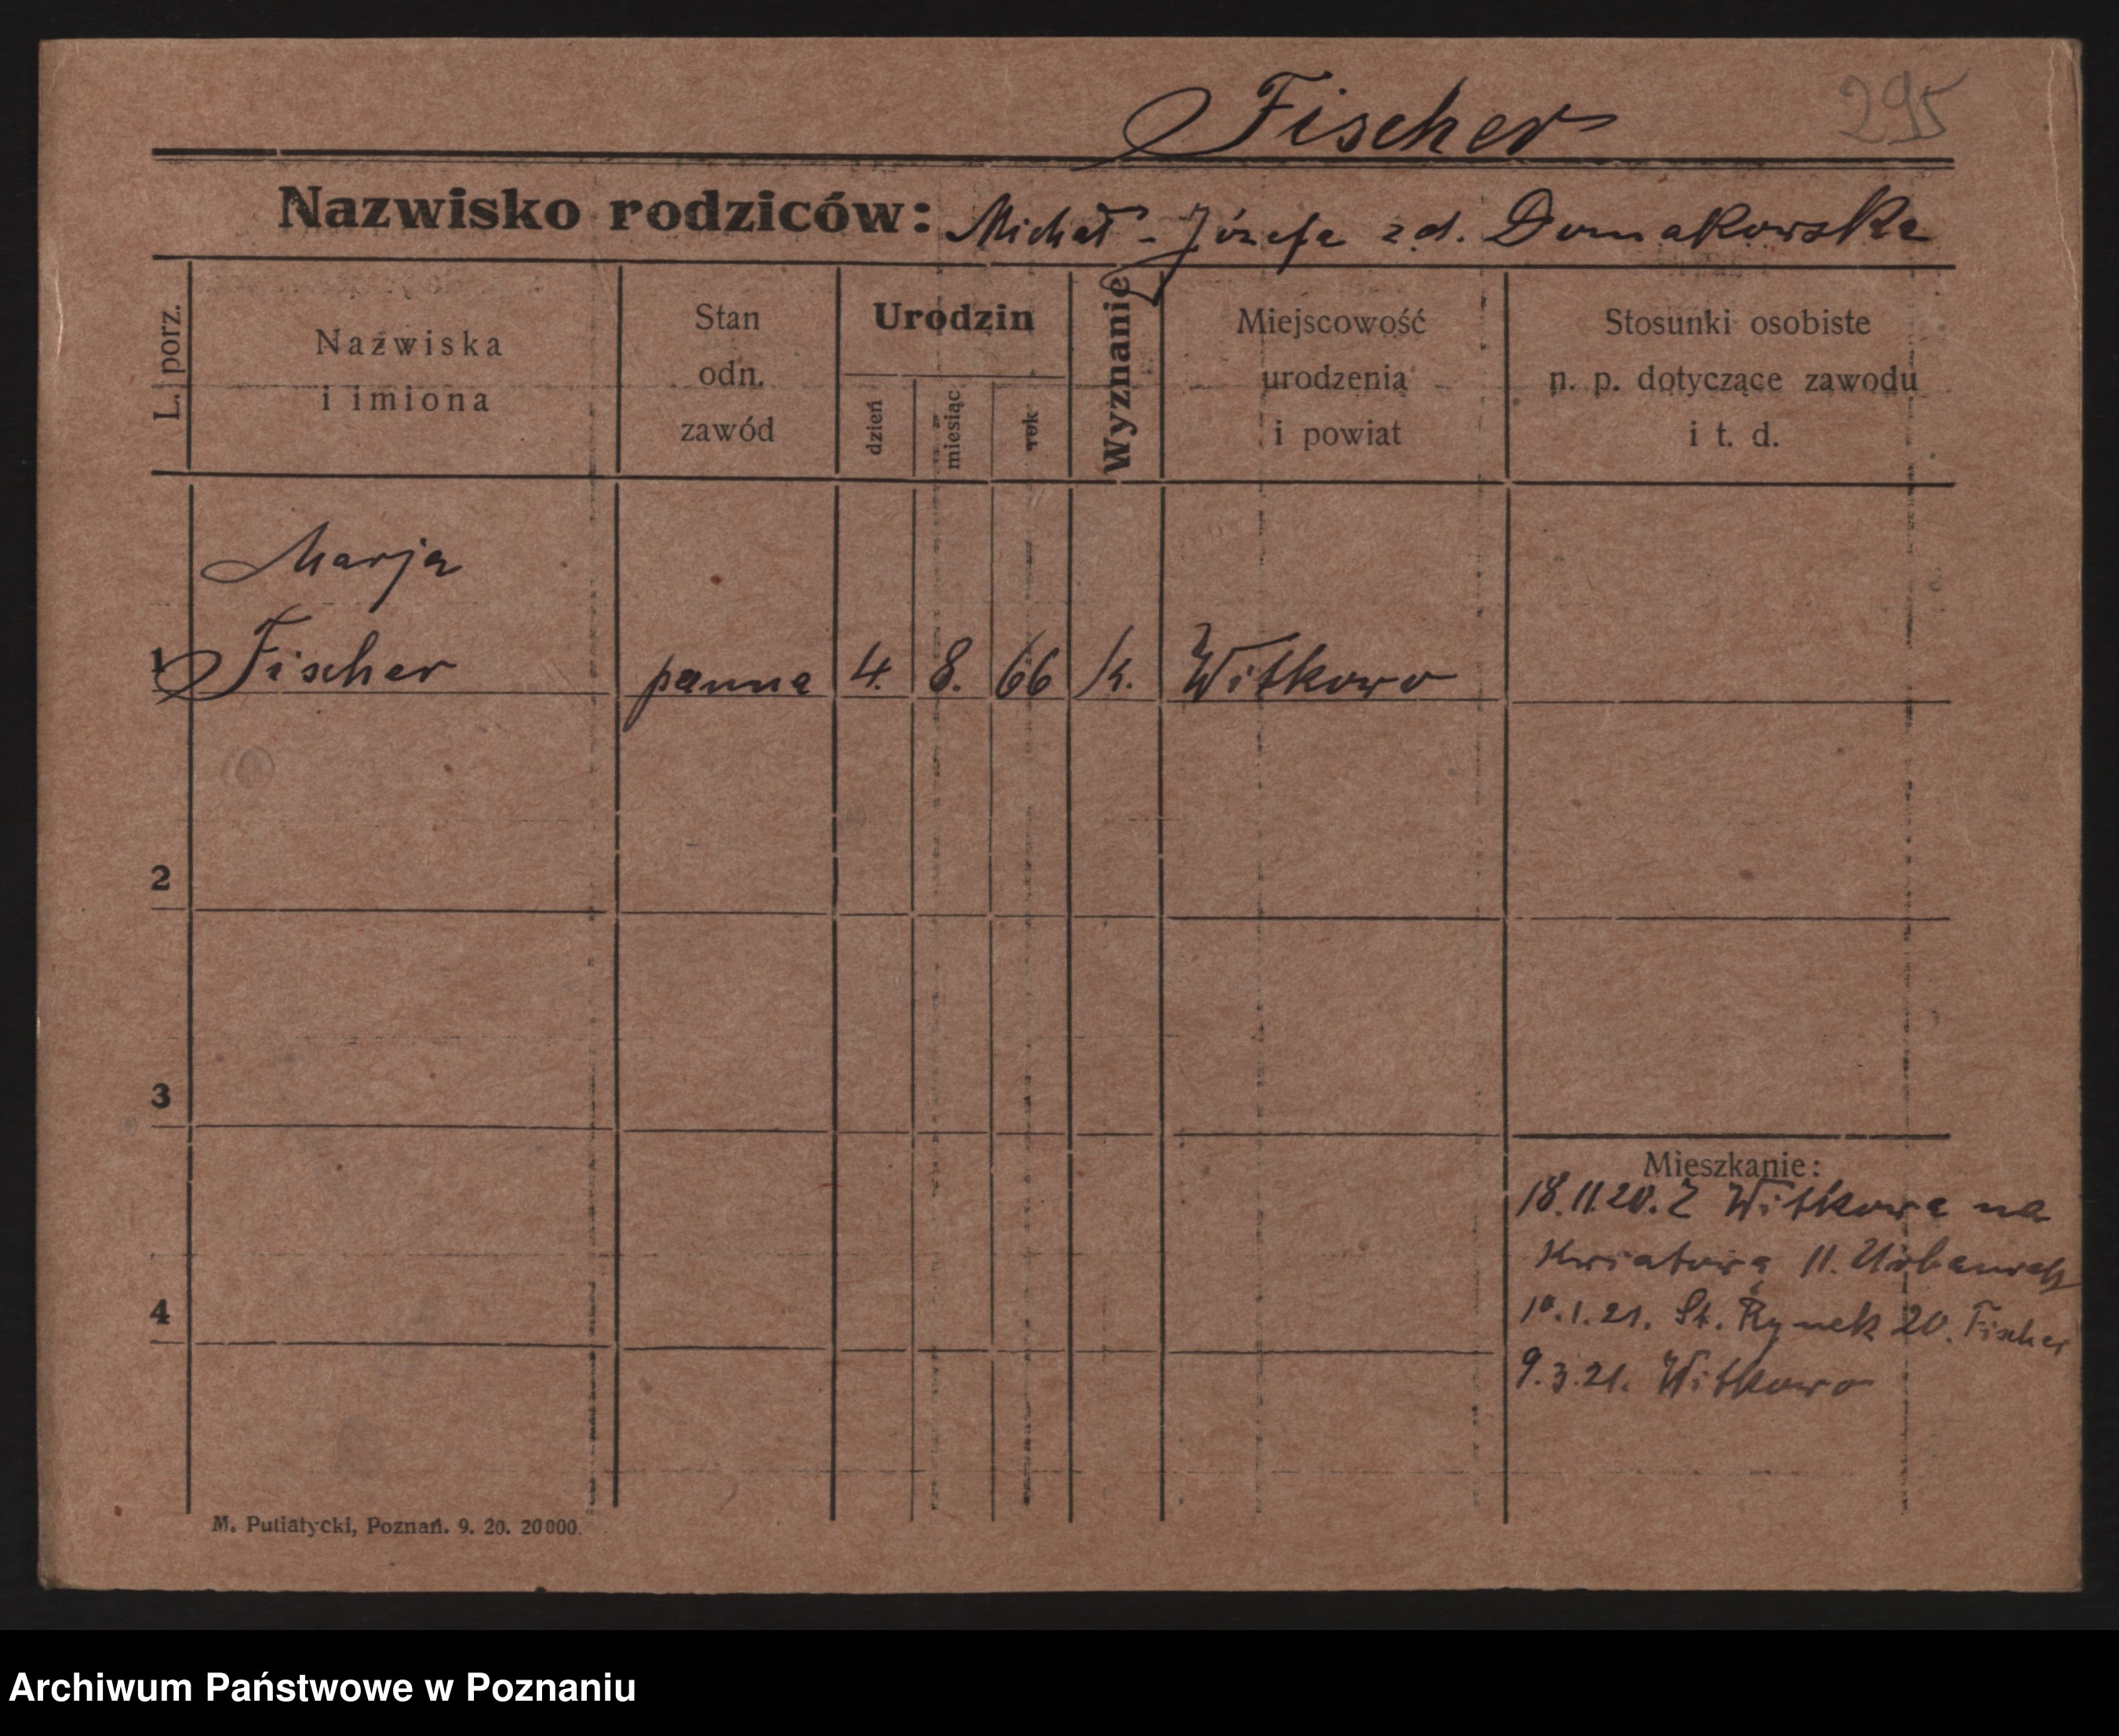 Fischer 295
Nazwisko rodziców: Michał - Józefa zd. Domakowska
L. porz.
Nazwiska
i imiona
Stan
odn.
zawód
Urodzin
dzień
miesiąc
rok
Wyznanie
Miejscowość
urodzenia
i powiat
Stosunki osobiste
n. p. dotyczące zawodu
i t. d.
Marja
1 Fischer panna 4. 8. 66 k. Witkowo
2
3
4
Mieszkanie:
18.11.20. Z Witkowa na
Kwiatową 11.
10.1.21. St. Rynek 20. Fischer
9.3.21. Witkowo
M. Putiatycki, Poznań. 9. 20. 20000.
Archiwum Państwowe w Poznaniu